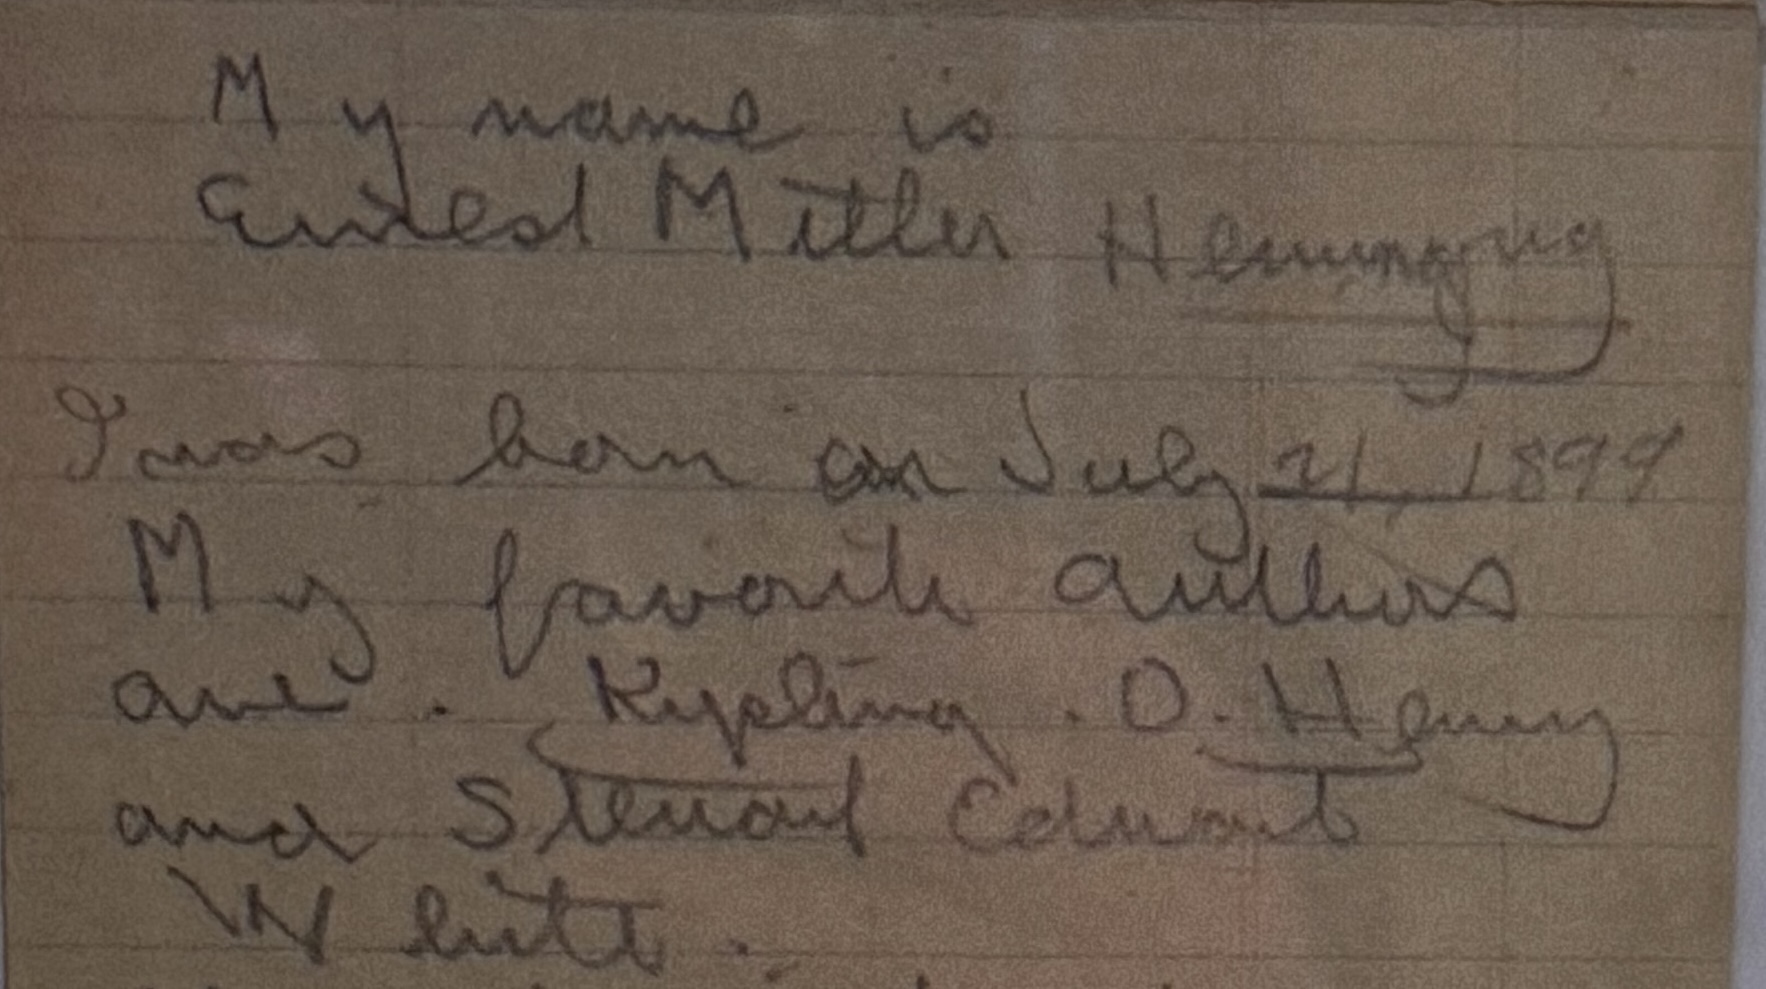 My name is
Ernest Miller Hemingway
I was born on July 21 1899
My favorite authors
are. Kipling. O. Henry
and Steuart Edward
White.